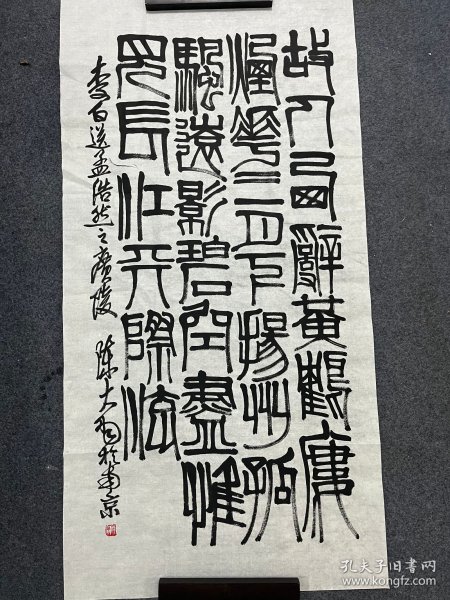 故人西辭黃鶴廔
煙華三月下揚州孤
颿遠影碧空盡惟
見長江天際流
李白送孟浩然之廣陵 陈大於南京
孔夫子旧书网
www.kongfz.com